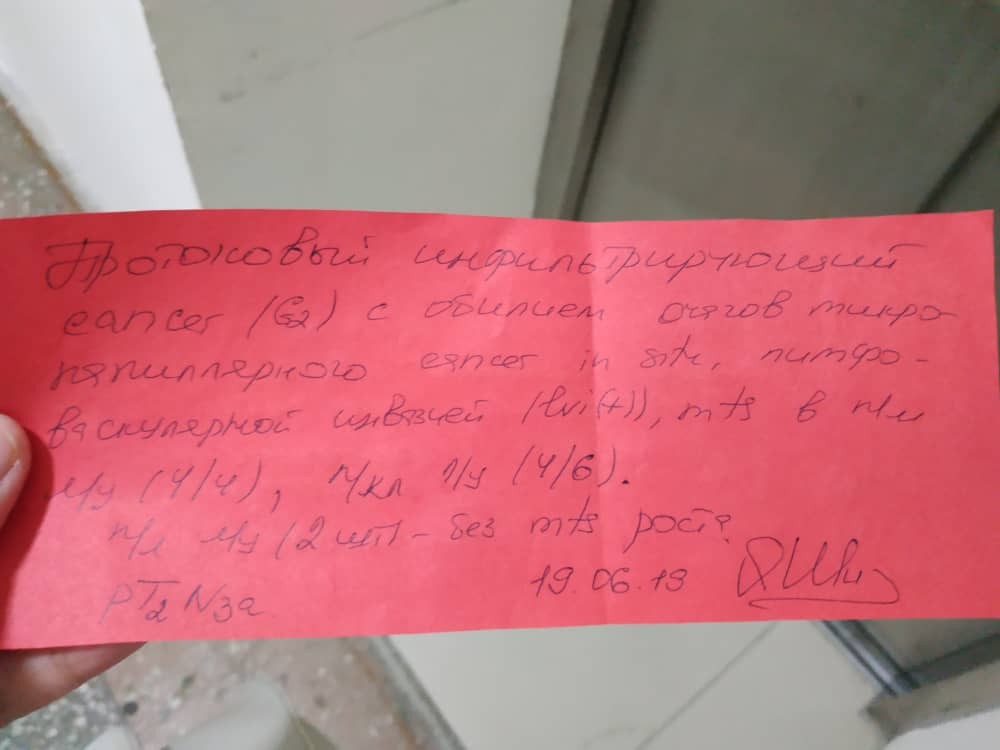 Протоковый инфильтрирующий
cancer (G2) с обилием очагов микро-
папиллярного cancer in situ, лимфо-
васкулярной инвазией (lvi(+)), mts в п/м
л/у (4/4), п/кл л/у (4/6).
л/у (2 шт) – без mts роста
pT2N3a 19.06.19